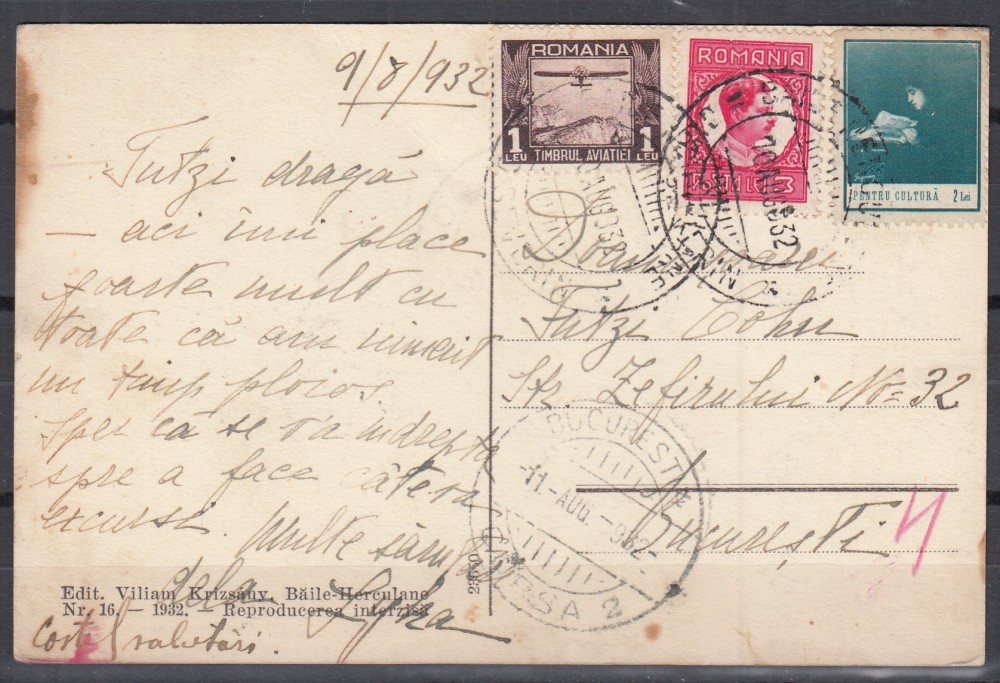 9/8/932
Tutzi dragă
aci îmi place
foarte mult cu
toate că am nimerit
un timp ploios.
Sper că se va îndrepta
spre a face câteva
excursi. Multe sărutări
dela
Edit. Viliam Krizsány, Băile-Herculane
Nr. 16. — 1932. — Reproducerea interzisă
salutări.
23690
ROMANIA
1 LEU TIMBRUL AVIATIEI 1 LEU
ROMANIA
POSTA LEI 3
PENTRU CULTURĂ 2 Lei
10 AUG 932
Tutzi Cohn
Str. Zefirului No= 32
BUCURESTI
-11.-AUG.-932-
2
București
4